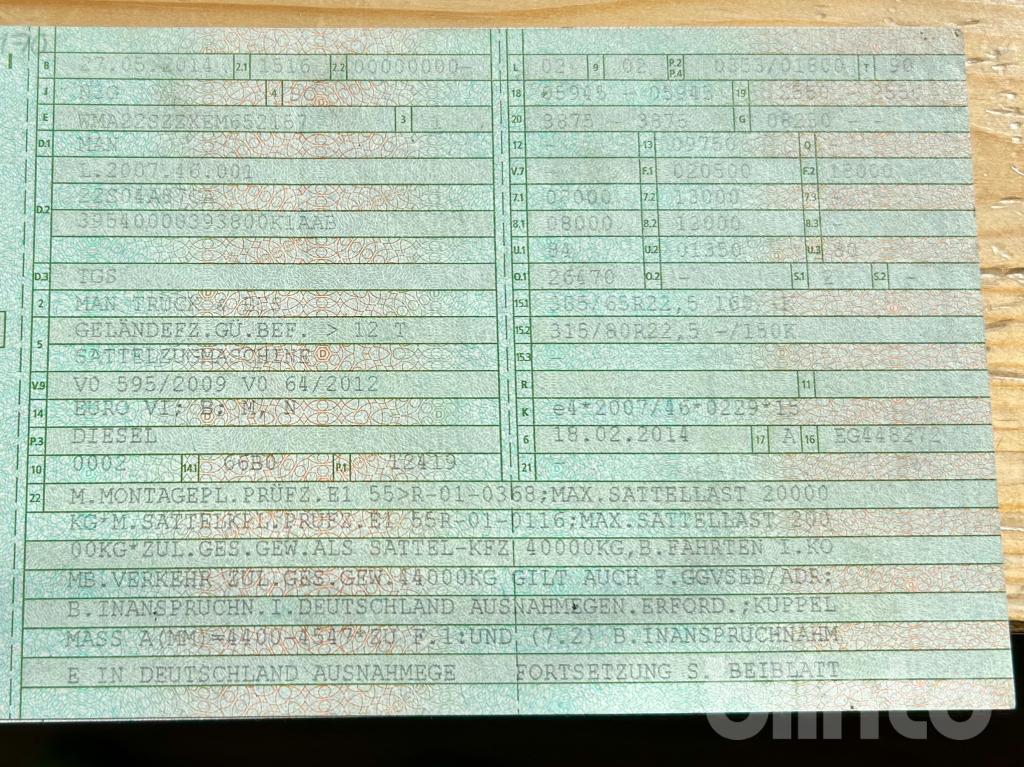 B 27.05.2014 2.1 1516 2.2 00000000- L 02 9 02 P.2 P.4 0353/01800 T 90
J N3G 4 18 05945 - 05945 19 2550 - 2550
E WMA22SZZXEM652157 3 1 20 3875 - 3875 G 08250 - -
D.1 MAN 12 - 13 09750 Q -
L.2007.46.001 V.7 - F.1 020500 F.2 18000
D.2 22S04A87CA 7.1 07.2 13000 7.3 -
39540000393800K1AAB 8.1 08000 8.2 12000 8.3 -
U.1 94 U.2 01350 U.3 80
D.3 TGS O.1 26470 O.2 - S.1 2 S.2 -
2 MAN TRUCK & BUS 15.1 385/65R22,5 160
5 GELÄNDEFZ.GÜ.BEF. > 12 T 15.2 315/80R22,5 -/150K
SATTELZUGMASCHINE 15.3 -
V.9 VO 595/2009 VO 64/2012 R - 11 -
14 EURO VI; B; M, N K e4*2007/46*0229*15
P.3 DIESEL 6 18.02.2014 17 A 16 EG448272
10 0002 14.1 66B0 P.1 12419 21 -
22 M.MONTAGEPL.PRÜFZ.E1 55>R-01-0368;MAX.SATTELLAST 20000
KG*M.SATTELKPL.PRÜFZ.E1 55R-01-0116;MAX.SATTELLAST 200
00KG*ZUL.GES.GEW.ALS SATTEL-KFZ 40000KG,B.FAHRTEN I.KO
MB.VERKEHR ZUL.GES.GEW.44000KG GILT AUCH F.GGVSEB/ADR:
B.INANSPRUCHN.I.DEUTSCHLAND AUSNAHMEGEN.ERFORD.;KUPPEL
MASS A(MM)=4400-4547*ZU F.1:UND (7.2) B.INANSPRUCHNAHM
E IN DEUTSCHLAND AUSNAHMEGE FORTSETZUNG S. BEIBLATT